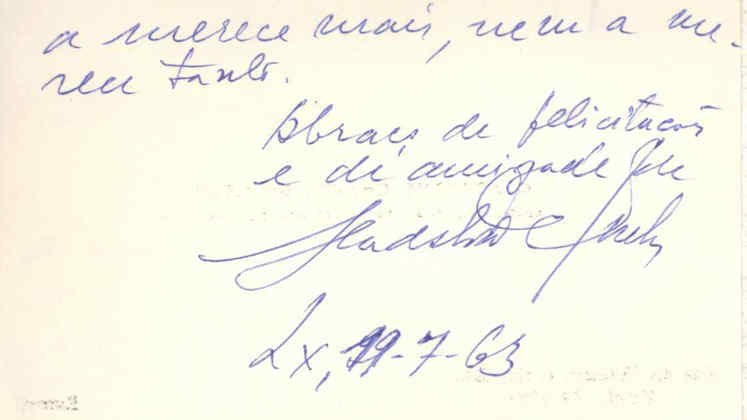 a merece mais, nem a me-
rece tanto.
Abraço de felicitações
e de amizade do
Lx, 19-7-63